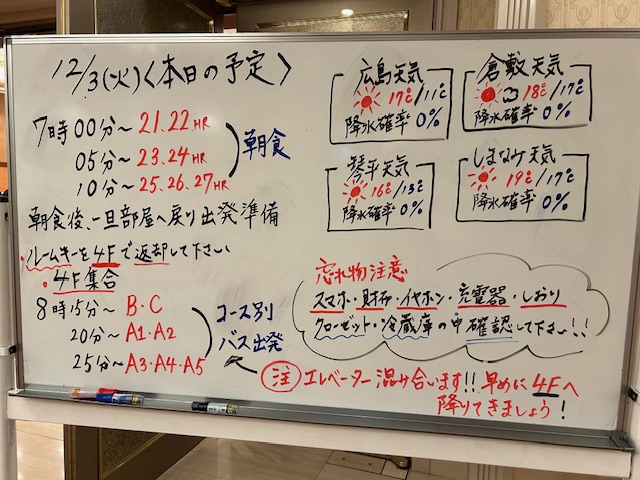 12/3(火)〈本日の予定〉
7時00分〜21.22HR
05分〜23.24HR
10分〜25.26.27HR
朝食
朝食後、一旦部屋へ戻り出発準備
・ルームキーを4Fで返却して下さい
・4F集合
8時15分〜B・C
20分〜A1・A2
25分〜A3・A4・A5
コース別
バス出発
広島天気
17℃/11℃
降水確率0%
倉敷天気
18℃/17℃
降水確率0%
琴平天気
16℃/13℃
降水確率0%
しまなみ天気
19℃/17℃
降水確率0%
忘れ物注意
スマホ・財布・イヤホン・充電器・しおり
クローゼット・冷蔵庫の中確認して下さい!!
注 エレベーター混み合います!!早めに4Fへ
降りてきましょう!